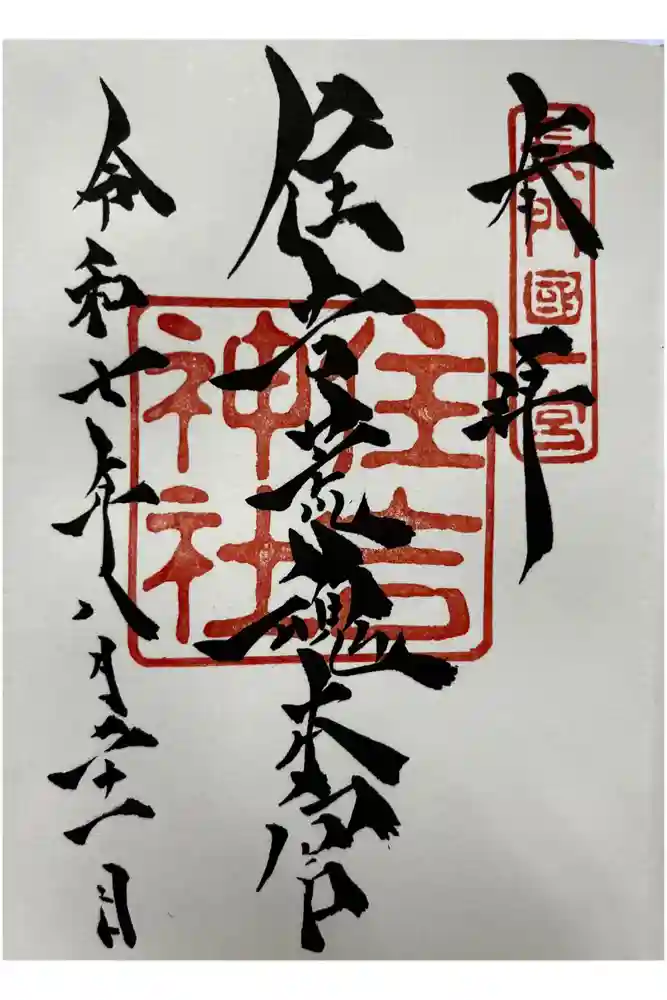 長門國一宮
奉拝
住吉荒魂本宮
住吉
神社
令和七年八月二十一日